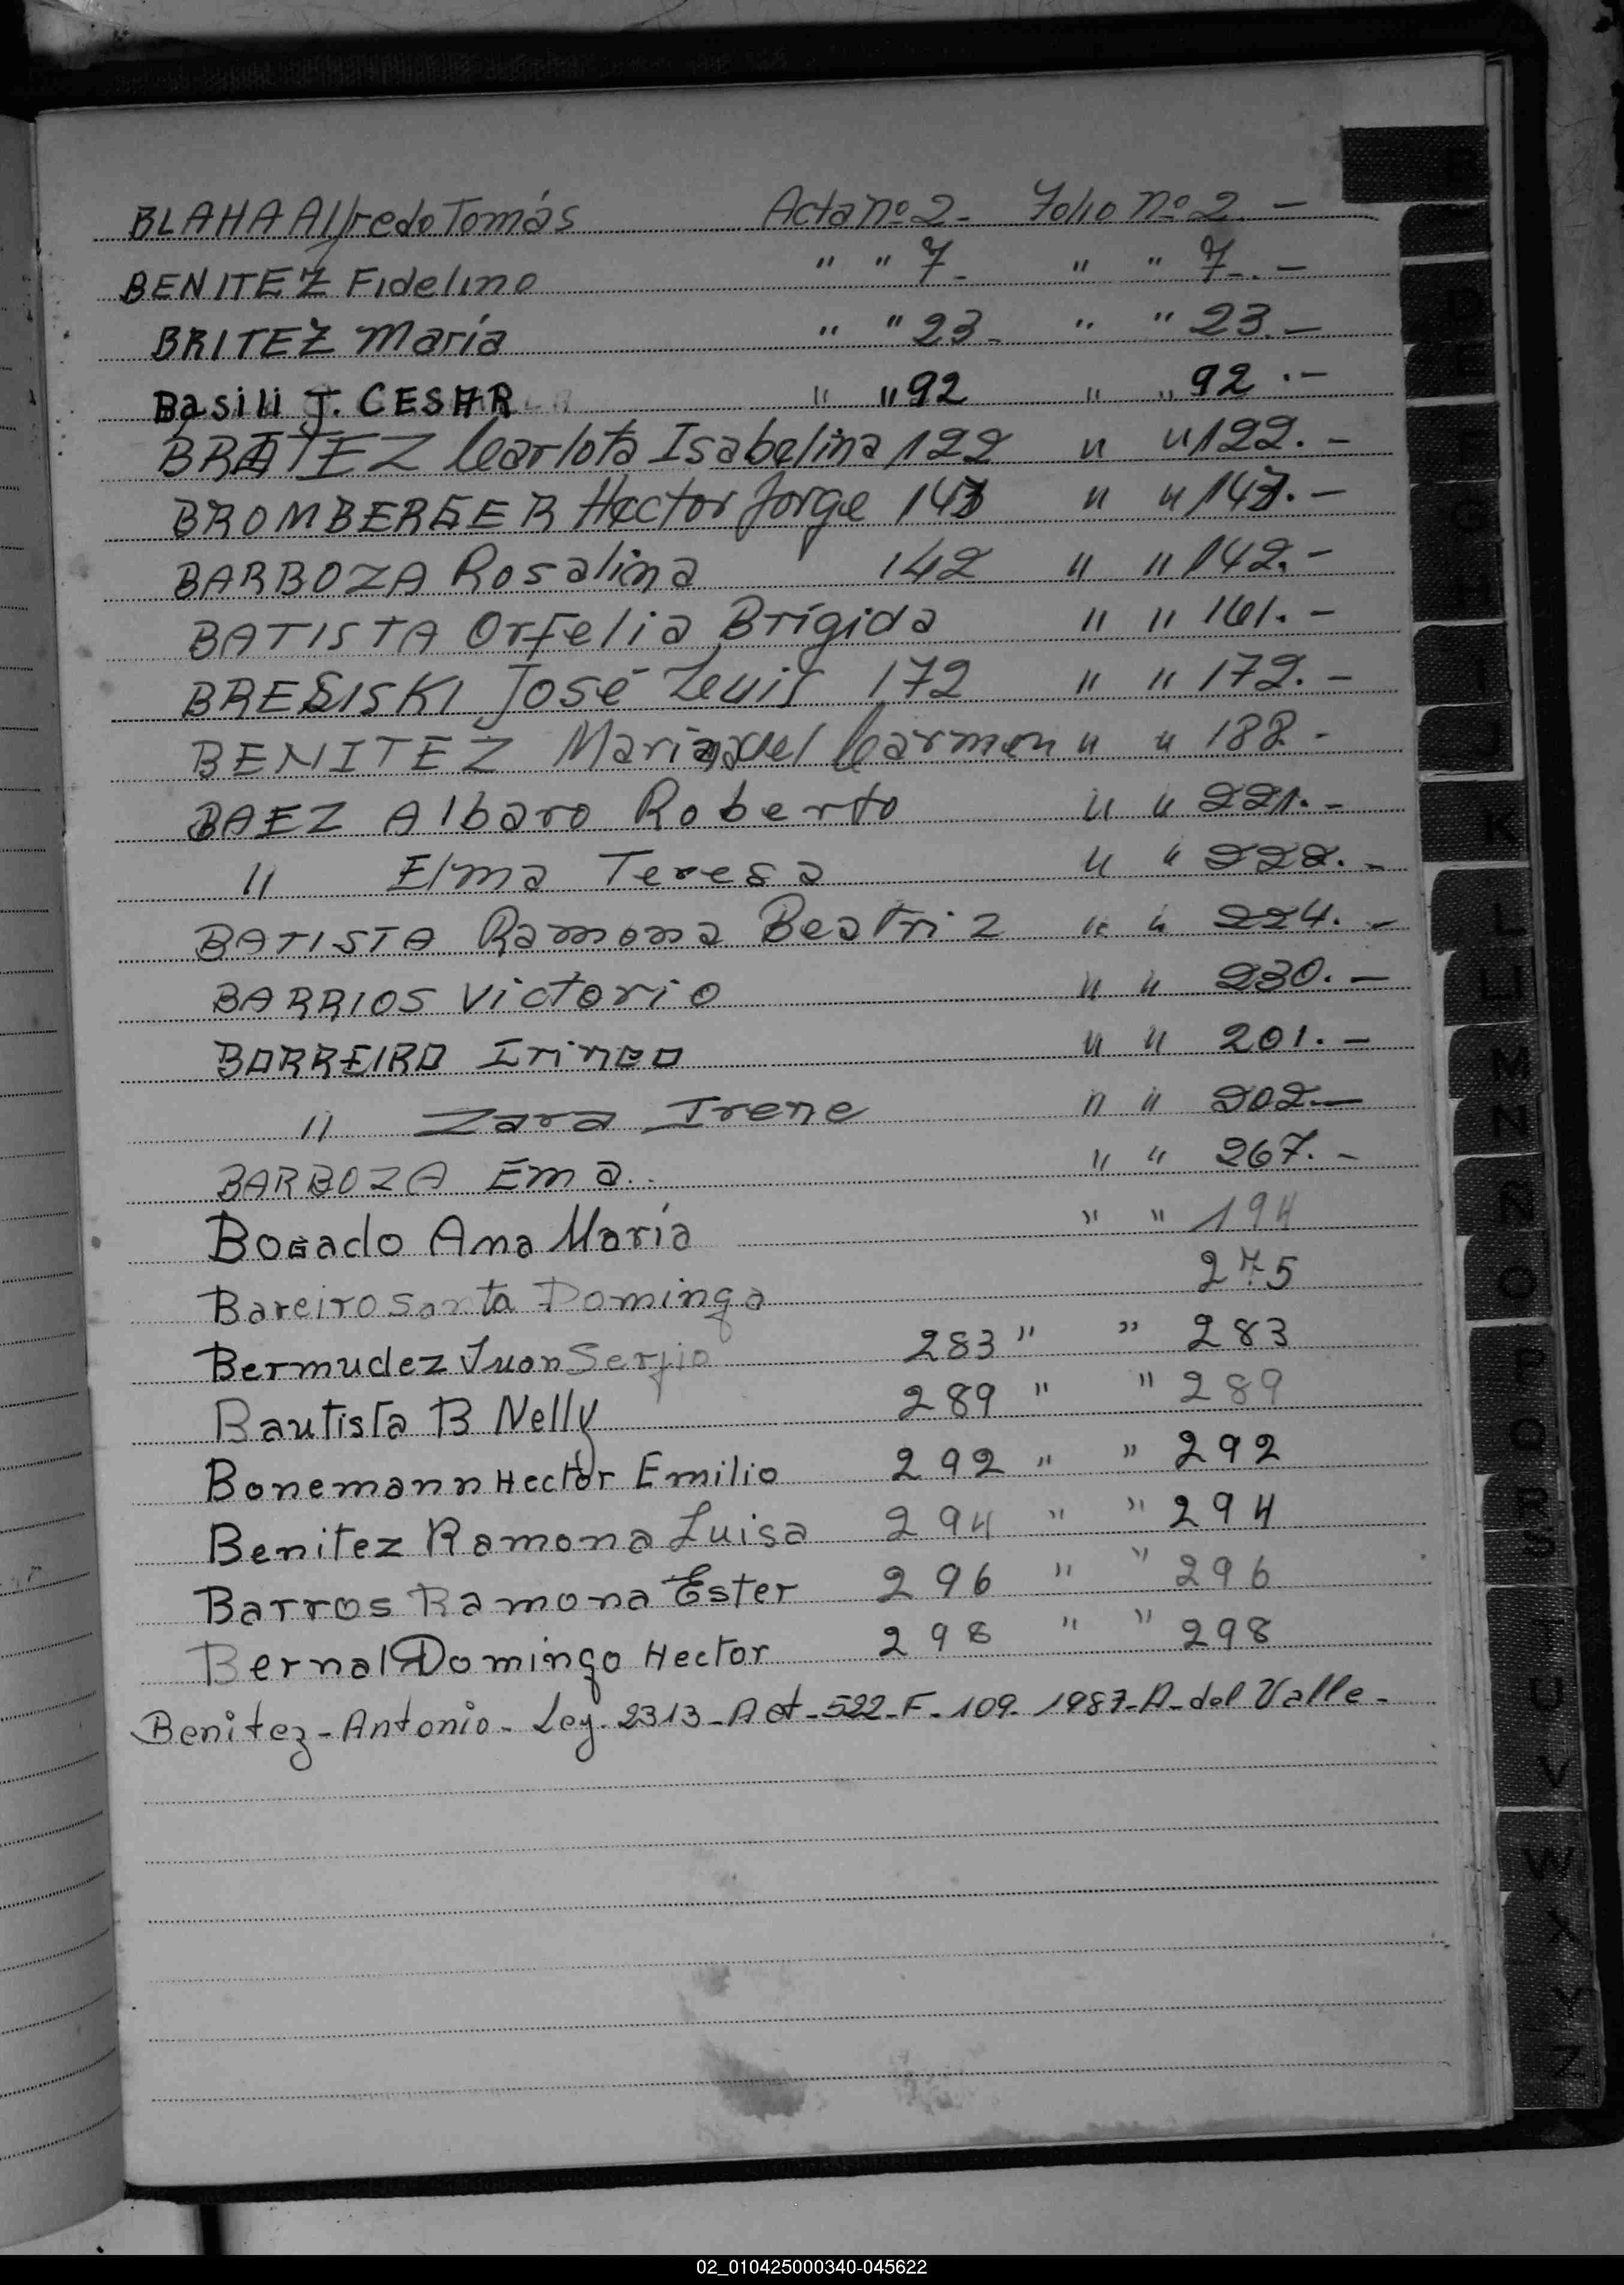 BLAHA Alfredo Tomás Acta nº 2- Folio nº 2. -
BENITEZ Fidelino " " 7- " " 7-. -
BRITEZ María " " 23- " " 23.-
Basili J. CESAR " " 92 " " 92 .-
Carlota Isabelina 122 " " 122. -
BROMBERGER Hector Jorge " "
BARBOZA Rosalina 142 " " 142. -
BATISTA Orfelia Brígida " " 161. -
José Luis 172 " " 172. -
BENITEZ Maria del Carmen " " 188. -
BAEZ Albaro Roberto " " 221. -
" Elma Teresa " " 222. -
BATISTA Ramona Beatriz " " 224. -
BARRIOS Victorio " " 230. -
BARREIRO Irineo " " 201. -
" Zara Irene " " 202.-
BARBOZA Ema.. " " 267. -
Bogado Ana María " " 194
Bareiro Santa Dominga 275
Bermudez Juan Sergio 283 " " 283
Bautista B Nelly 289 " " 289
Bonemann Hector Emilio 292 " " 292
Benitez Ramona Luisa 294 " " 294
Barros Ramona Ester 296 " " 296
Bernal Domingo Hector 298 " " 298
Benitez - Antonio - Ley. 2313 - Act - 522 - F - 109 - 1987 - A - del Valle -
B
D
E
F
G
H
I
J
K
L
LL
M
N
Ñ
O
P
Q
R
S
T
U
V
W
X
Y
Z
02_010425000340-045622